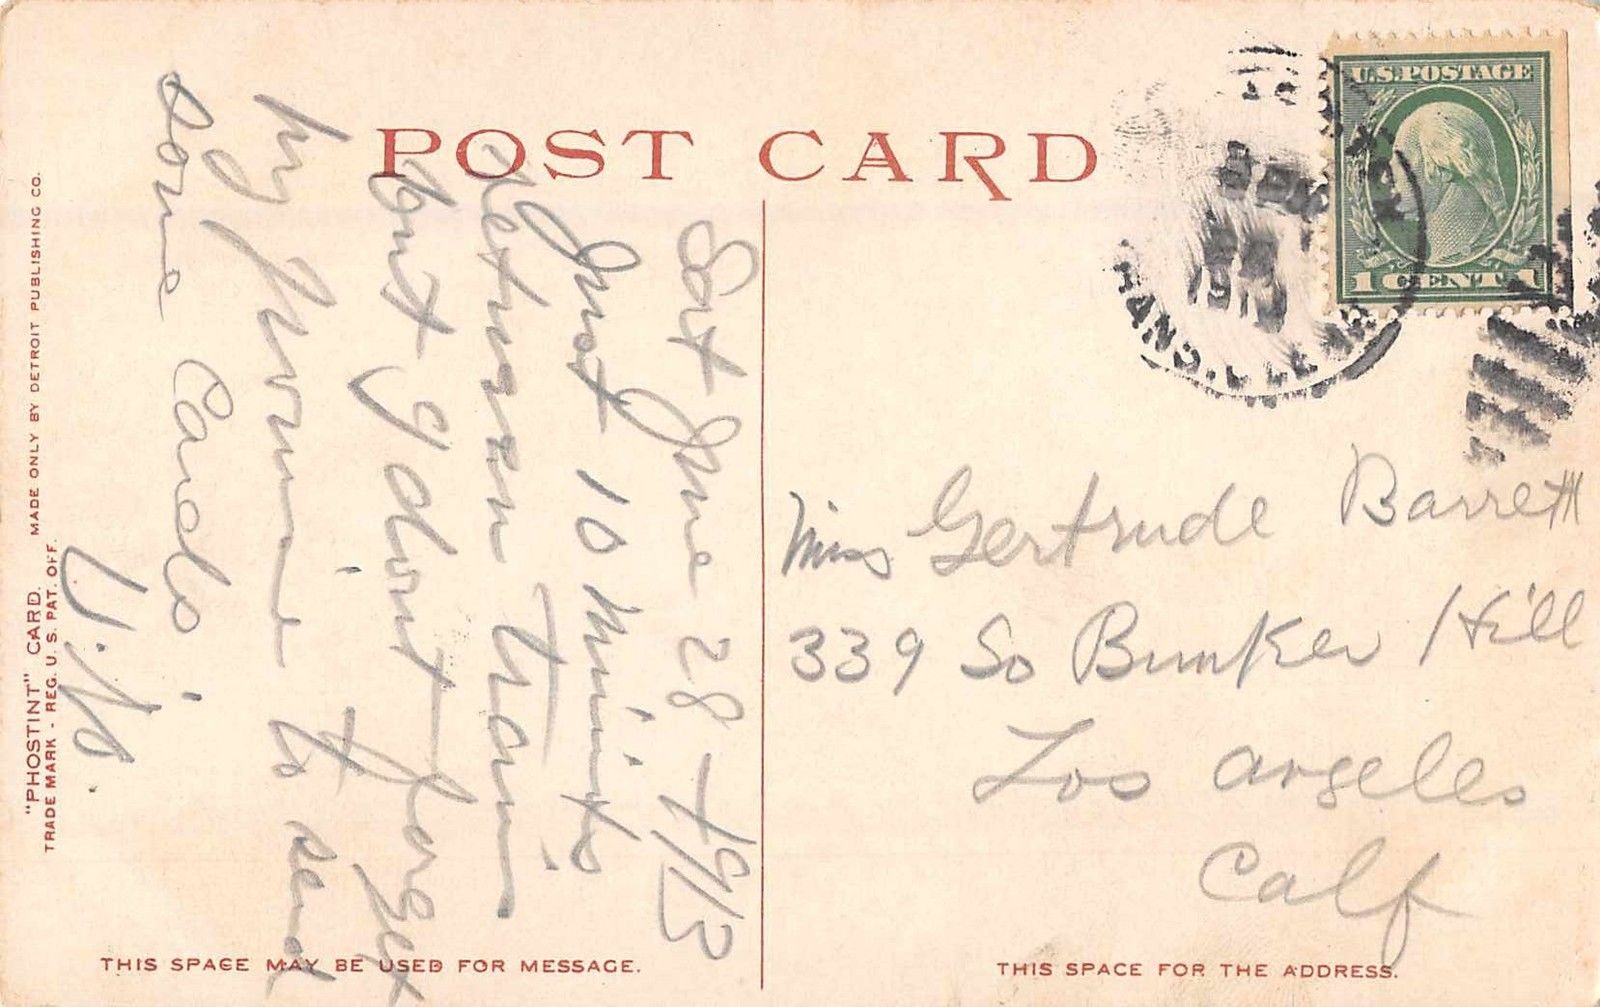 POST CARD
U.S. POSTAGE
1 CENT 1
1913
Sat June 28 - 1913
Just 10 Minits
between train
but I dont forget
my promise to send
some Cards
Miss Gertrude Barrett
339 So Bunker Hill
Los angeles
Calf
"PHOSTINT" CARD. MADE ONLY BY DETROIT PUBLISHING CO.
TRADE MARK - REG. U. S. PAT. OFF.
THIS SPACE MAY BE USED FOR MESSAGE.
THIS SPACE FOR THE ADDRESS.